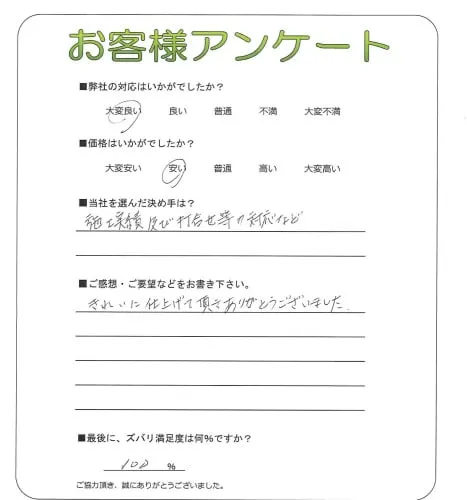 お客様アンケート
■弊社の対応はいかがでしたか？
大変良い 良い 普通 不満 大変不満
■価格はいかがでしたか？
大変安い 安い 普通 高い 大変高い
■当社を選んだ決め手は？
施工実績及び打合せ等の対応など
■ご感想・ご要望などをお書き下さい。
きれいに仕上げて頂きありがとうございました。
■最後に、ズバリ満足度は何％ですか？
100 ％
ご協力頂き、誠にありがとうございました。